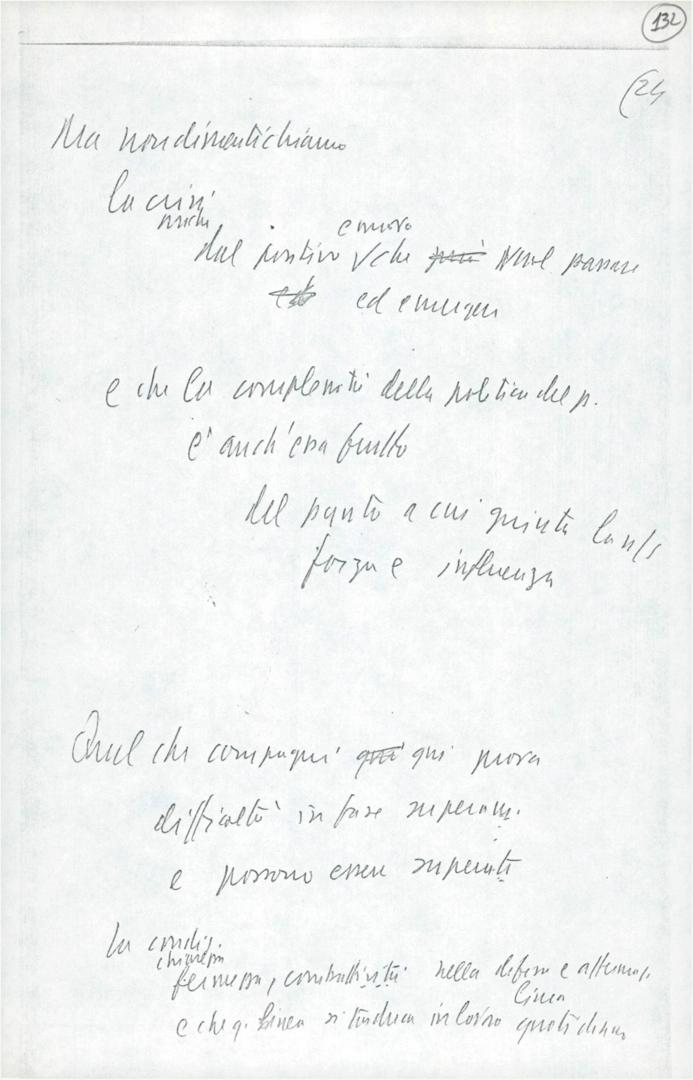 132
(24
Ma non dimentichiamo
la crisi
nasce
e nuovo
dal positivo che vuol passare
ed emergere
e che la complessità della politica del p.
è anch'essa frutto
del punto a cui giunta la ns/
forza e influenza
Qualche compagni qui prova
difficoltà in fase superam.
e possono essere superate
la condiz.
chiarezza
fermezza, combattività nella difesa e affermaz.
linea
e che q. linea si traduca in lavoro quotidiano